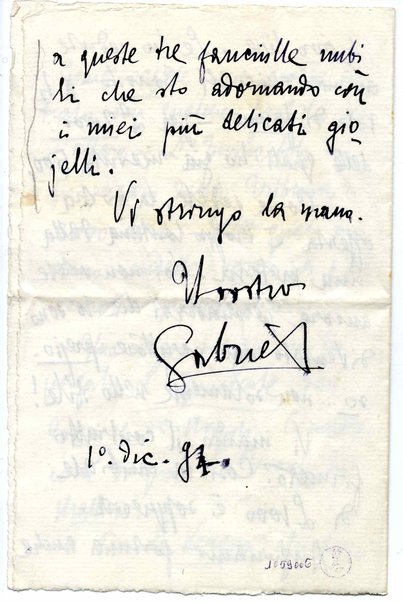 a queste tre fanciulle nubi
li che sto adornando con
i miei più delicati gio
jelli.
Vi stringo la mano.
Il vostro
Gabriel
1º. dic. 94.
1059006